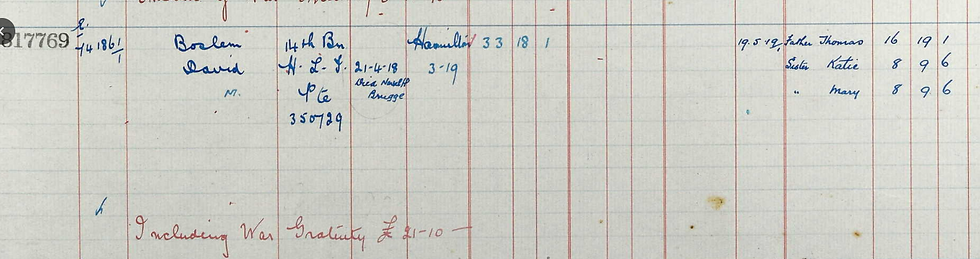 817769 E/741861/1 Boslem 14th Bn Hamilton 33 18 1 19.5.19 Father Thomas 16 19 1
David H. L. I. 21-4-18 3-19 Sister Katie 8 9 6
M. Pte Died Brugge " Mary 8 9 6
350729
Including War Gratuity £ 21-10 —